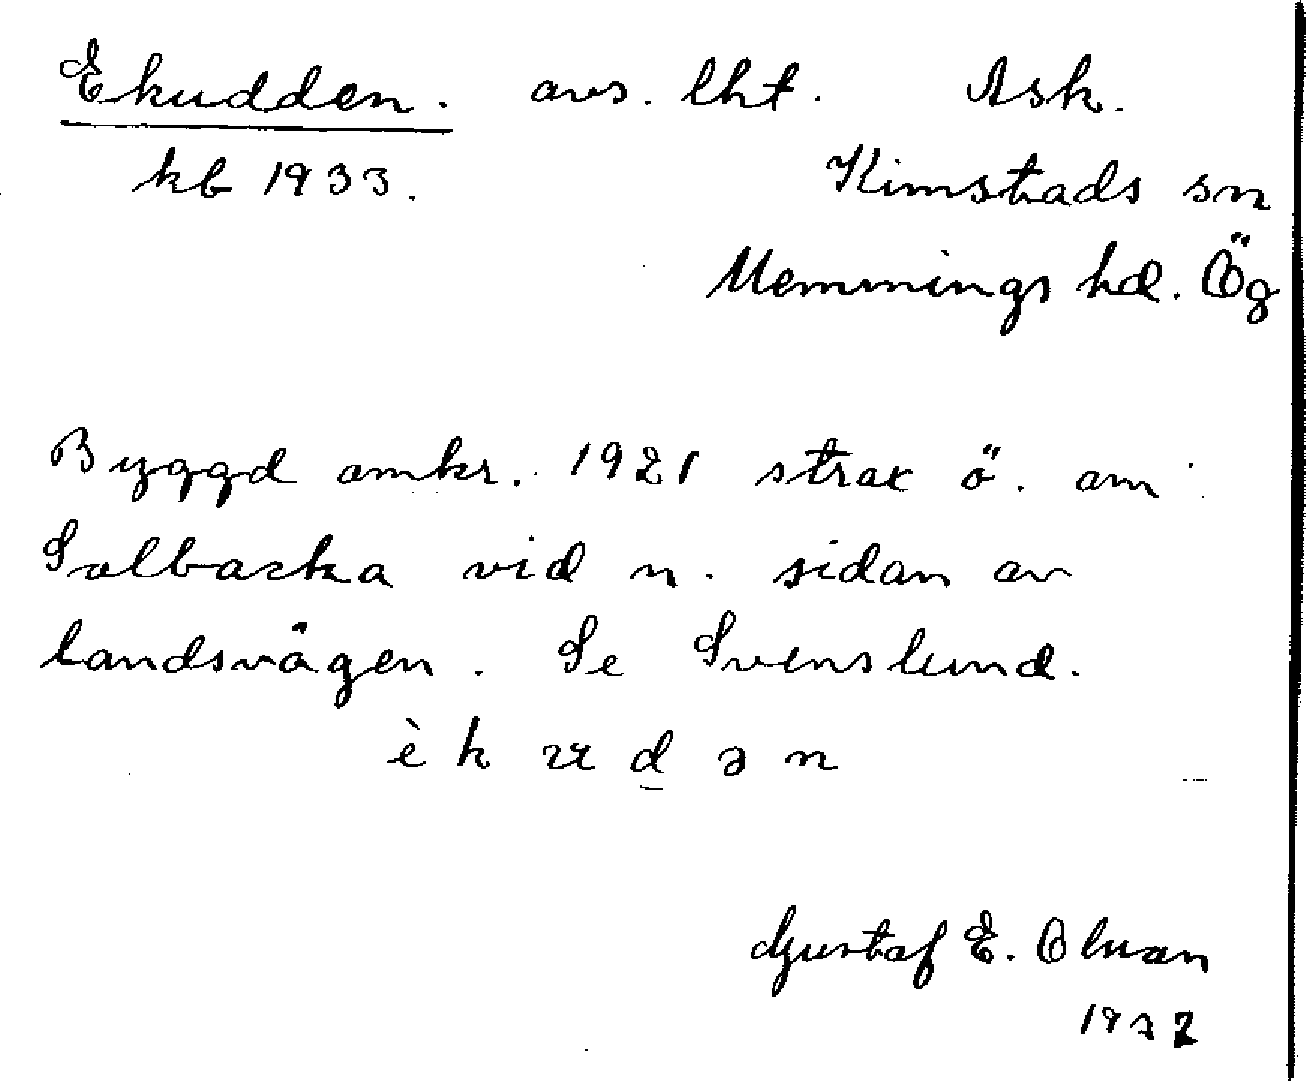 Ekudden. avs. lht. Ask.
kb 1933. Kimstads sn
Memmings hd. Ög
Byggd omkr. 1921 strax ö. om
Solbacka vid n. sidan av
landsvägen. Se Svenslund.
è k u d ə n
Gustaf E. Olson